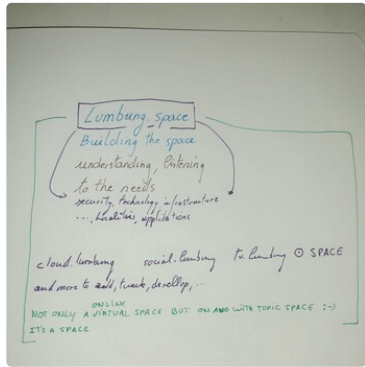 Lumbung.space
Building the space
understanding, listening
to the needs
security, technology infrastructure
..., localities, applications
cloud.lumbung social.lumbung tv.lumbung ⊙ SPACE
and more to add, tweak, develop, ...
ONLINE
NOT ONLY A VIRTUAL SPACE BUT ON AND WITH TOPIC SPACE :-)
IT'S A SPACE